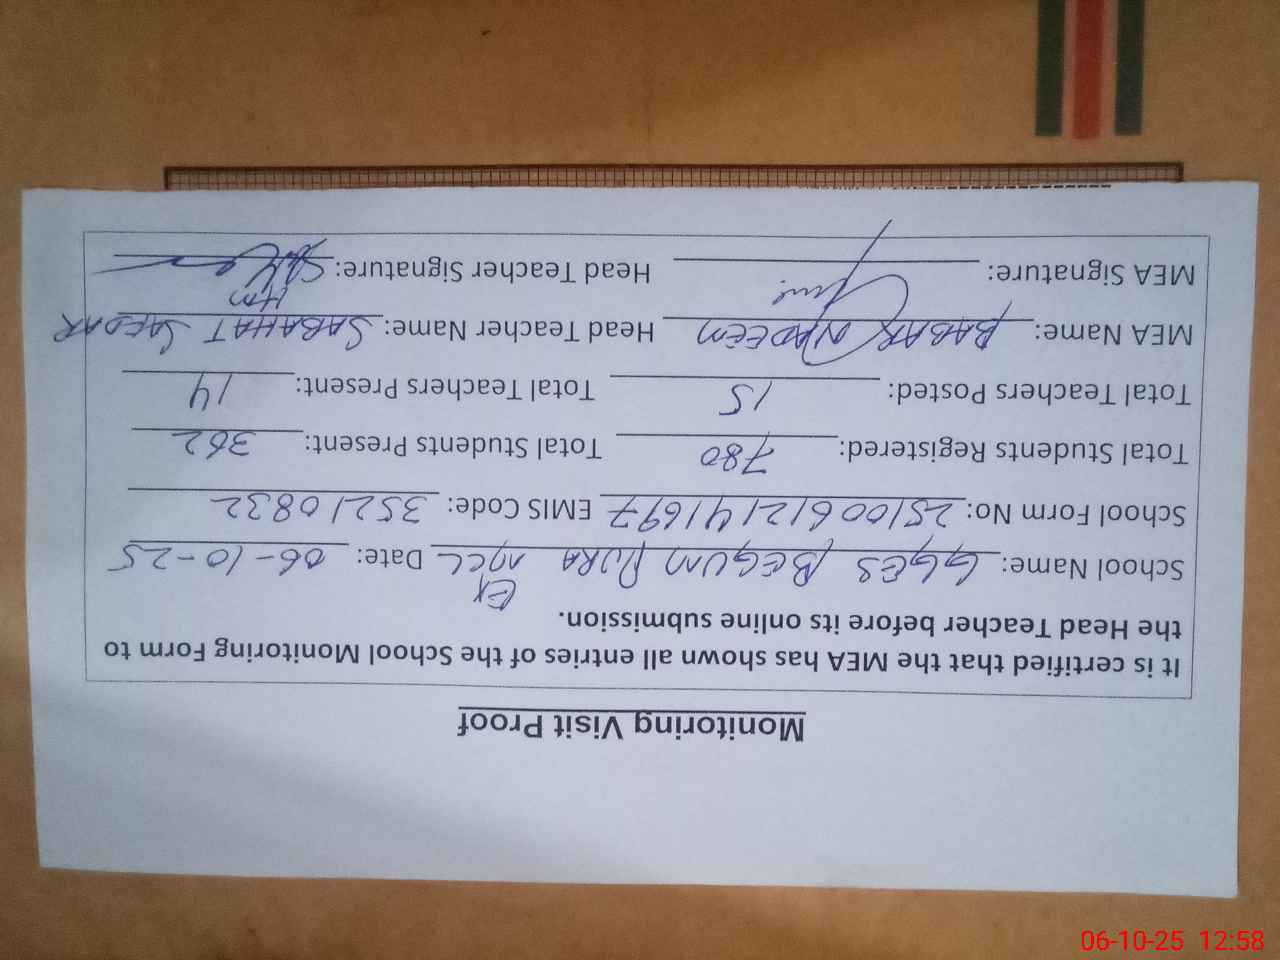 Monitoring Visit Proof
It is certified that the MEA has shown all entries of the School Monitoring Form to
the Head Teacher before its online submission.
Ex
School Name: GGES BEGUM PURA MCL Date: 06-10-25
School Form No: 2510061214 1697 EMIS Code: 35210832
Total Students Registered: 780 Total Students Present: 362
Total Teachers Posted: 15 Total Teachers Present: 14
MEA Name: BABAR NADEEM Head Teacher Name: SABAHAT SAFDAR
Hm
MEA Signature: Head Teacher Signature:
06-10-25 12:58